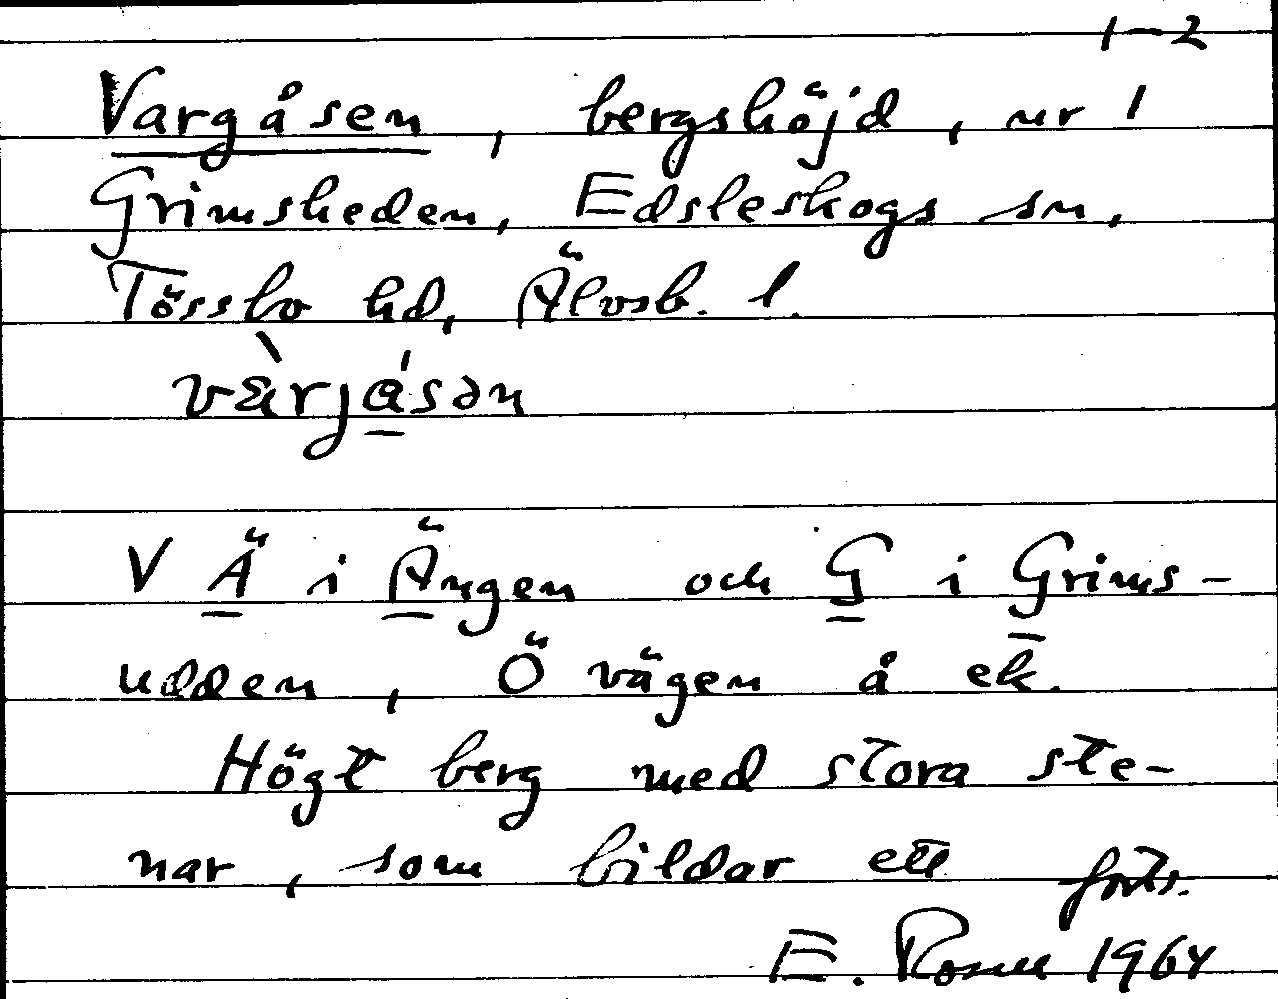 1-2
Vargåsen, bergshöjd, nr 1
Grimsheden, Edsleskogs sn,
Tössbo hd, Älvsb. l.
væ̀rjǻ̱sən
V Ä i Ängen och G i Grims-
udden, Ö vägen å ek.
Högt berg med stora ste-
nar, som bildar ett forts.
E. Rosell 1964